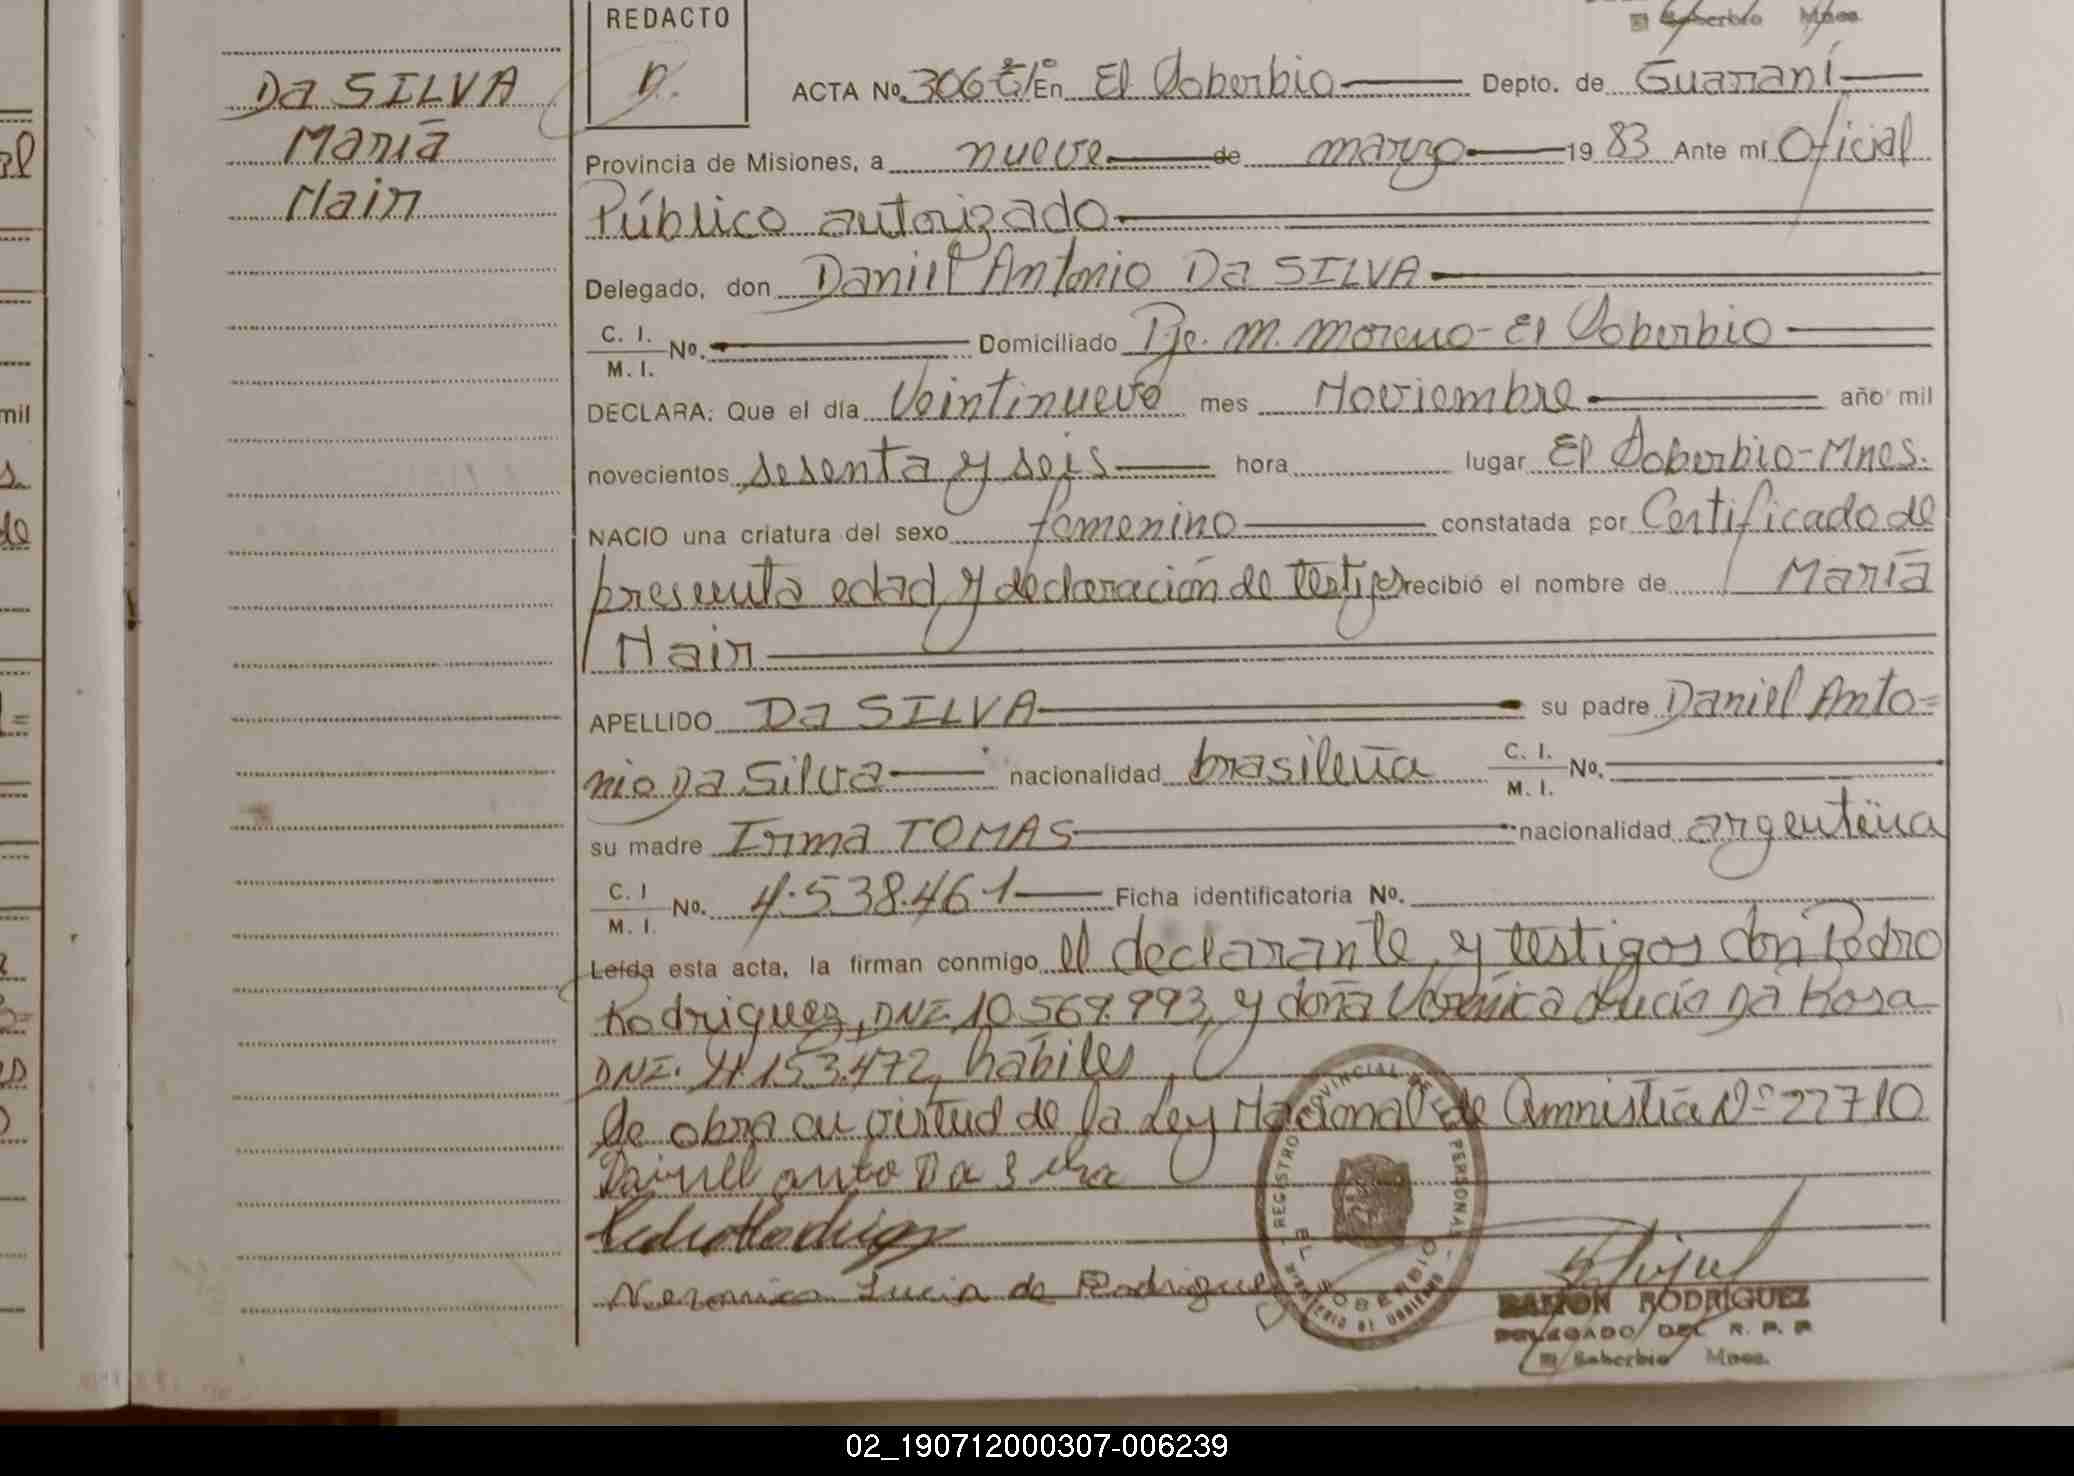 REDACTO
El Soberbio Mnes.
DA SILVA
María
Nair
ACTA Nº 306 En El Soberbio Depto. de Guaraní
Provincia de Misiones, a nueve de marzo 19 83 Ante mí Oficial
Público autorizado
Delegado, don Daniel Antonio DA SILVA
C. I.
M. I. Nº. Domiciliado Pje. M. Moreno - El Soberbio
DECLARA: Que el día Veintinueve mes Noviembre año mil
novecientos sesenta y seis hora lugar El Soberbio - Mnes.
NACIO una criatura del sexo femenino constatada por Certificado de
presunta edad y declaración de testigos recibió el nombre de María
Nair
APELLIDO DA SILVA su padre Daniel Anto=
nio Da Silva nacionalidad brasileña C. I.
M. I. Nº.
su madre Irma TOMAS nacionalidad argentina
C. I
M. I. Nº. 4.538.461 Ficha identificatoria Nº.
Leída esta acta, la firman conmigo el declarante y testigos don Pedro
Rodriguez, DNI. 10.569.993, y doña Verónica Lucía Da Rosa
DNI. 11.153.472, hábiles
Se obra en virtud de la Ley Nacional de Amnistía Nº 22710
Daniel anto Da Silva
Pedro Rodrigez
Veronica Lucia de Rodriguez
REGISTRO PROVINCIAL DE PERSONAS
EL SOBERBIO
MINISTERIO DE GOBIERNO
RAMON RODRIGUEZ
DELEGADO DEL R. P. P.
El Soberbio Mnes.
mil
de
02_190712000307-006239